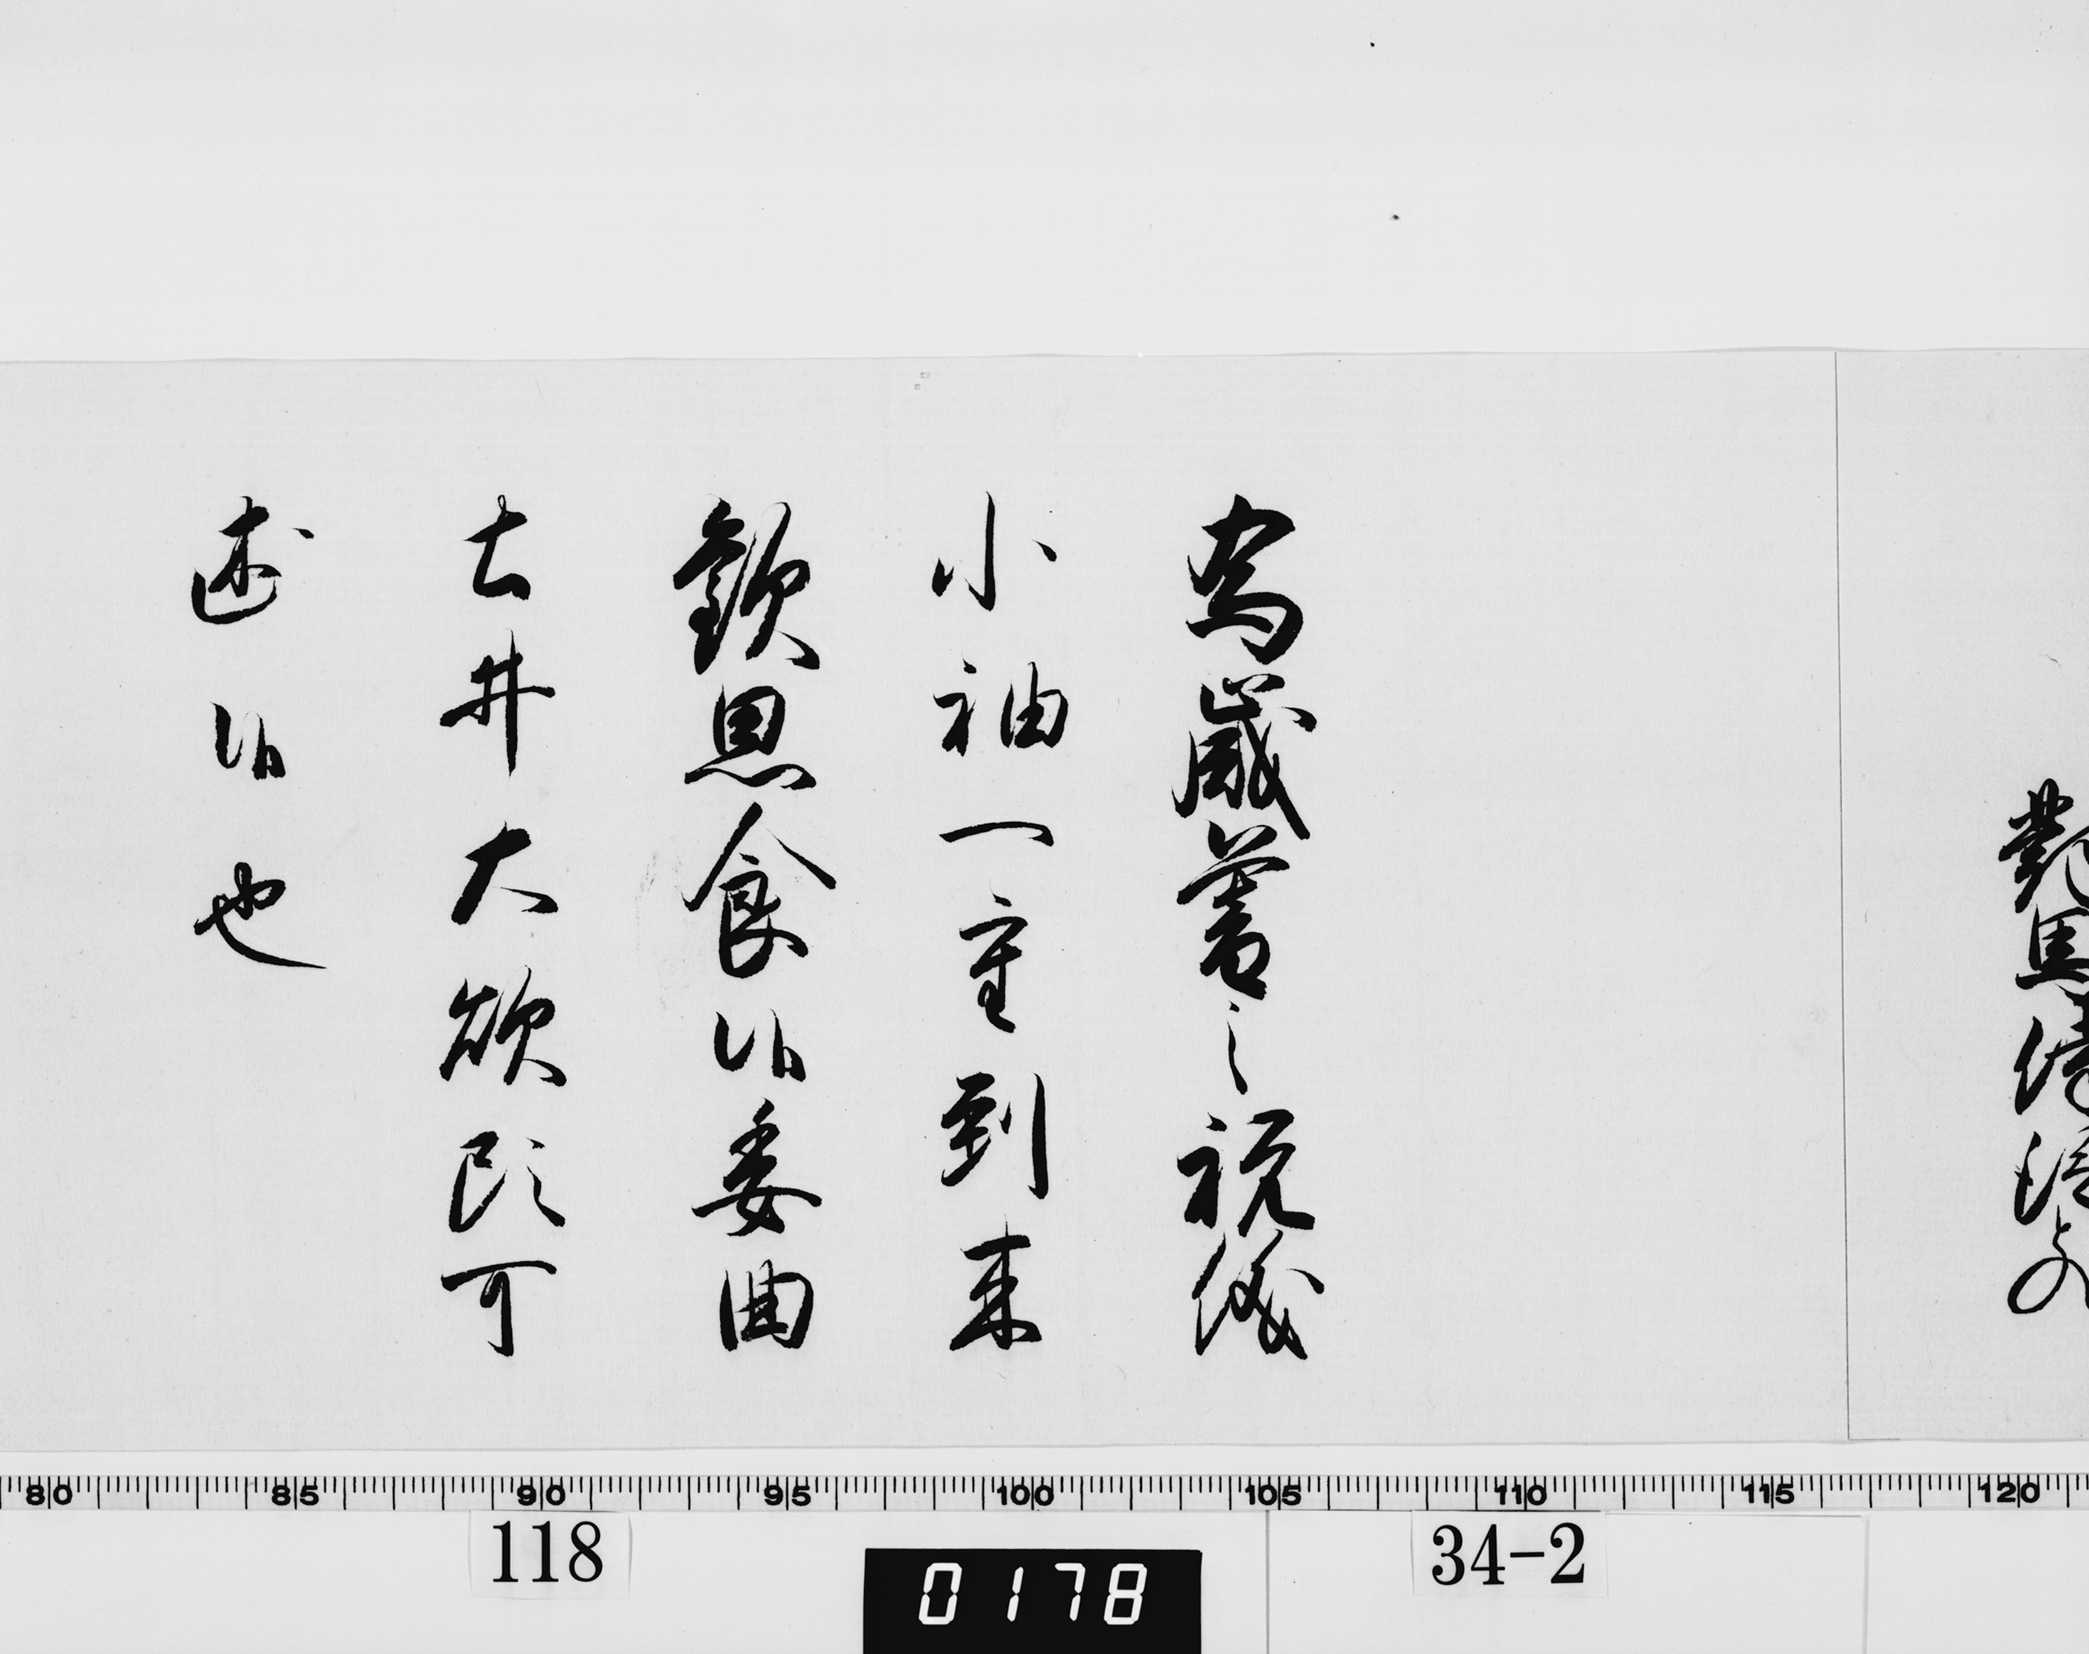 對馬侍従との
為歳暮之祝儀
小袖一重到来
歓思食候委曲
土井大炊頭可
述候也
80 85 90 95 100 105 110 115 120
118
0178
34-2